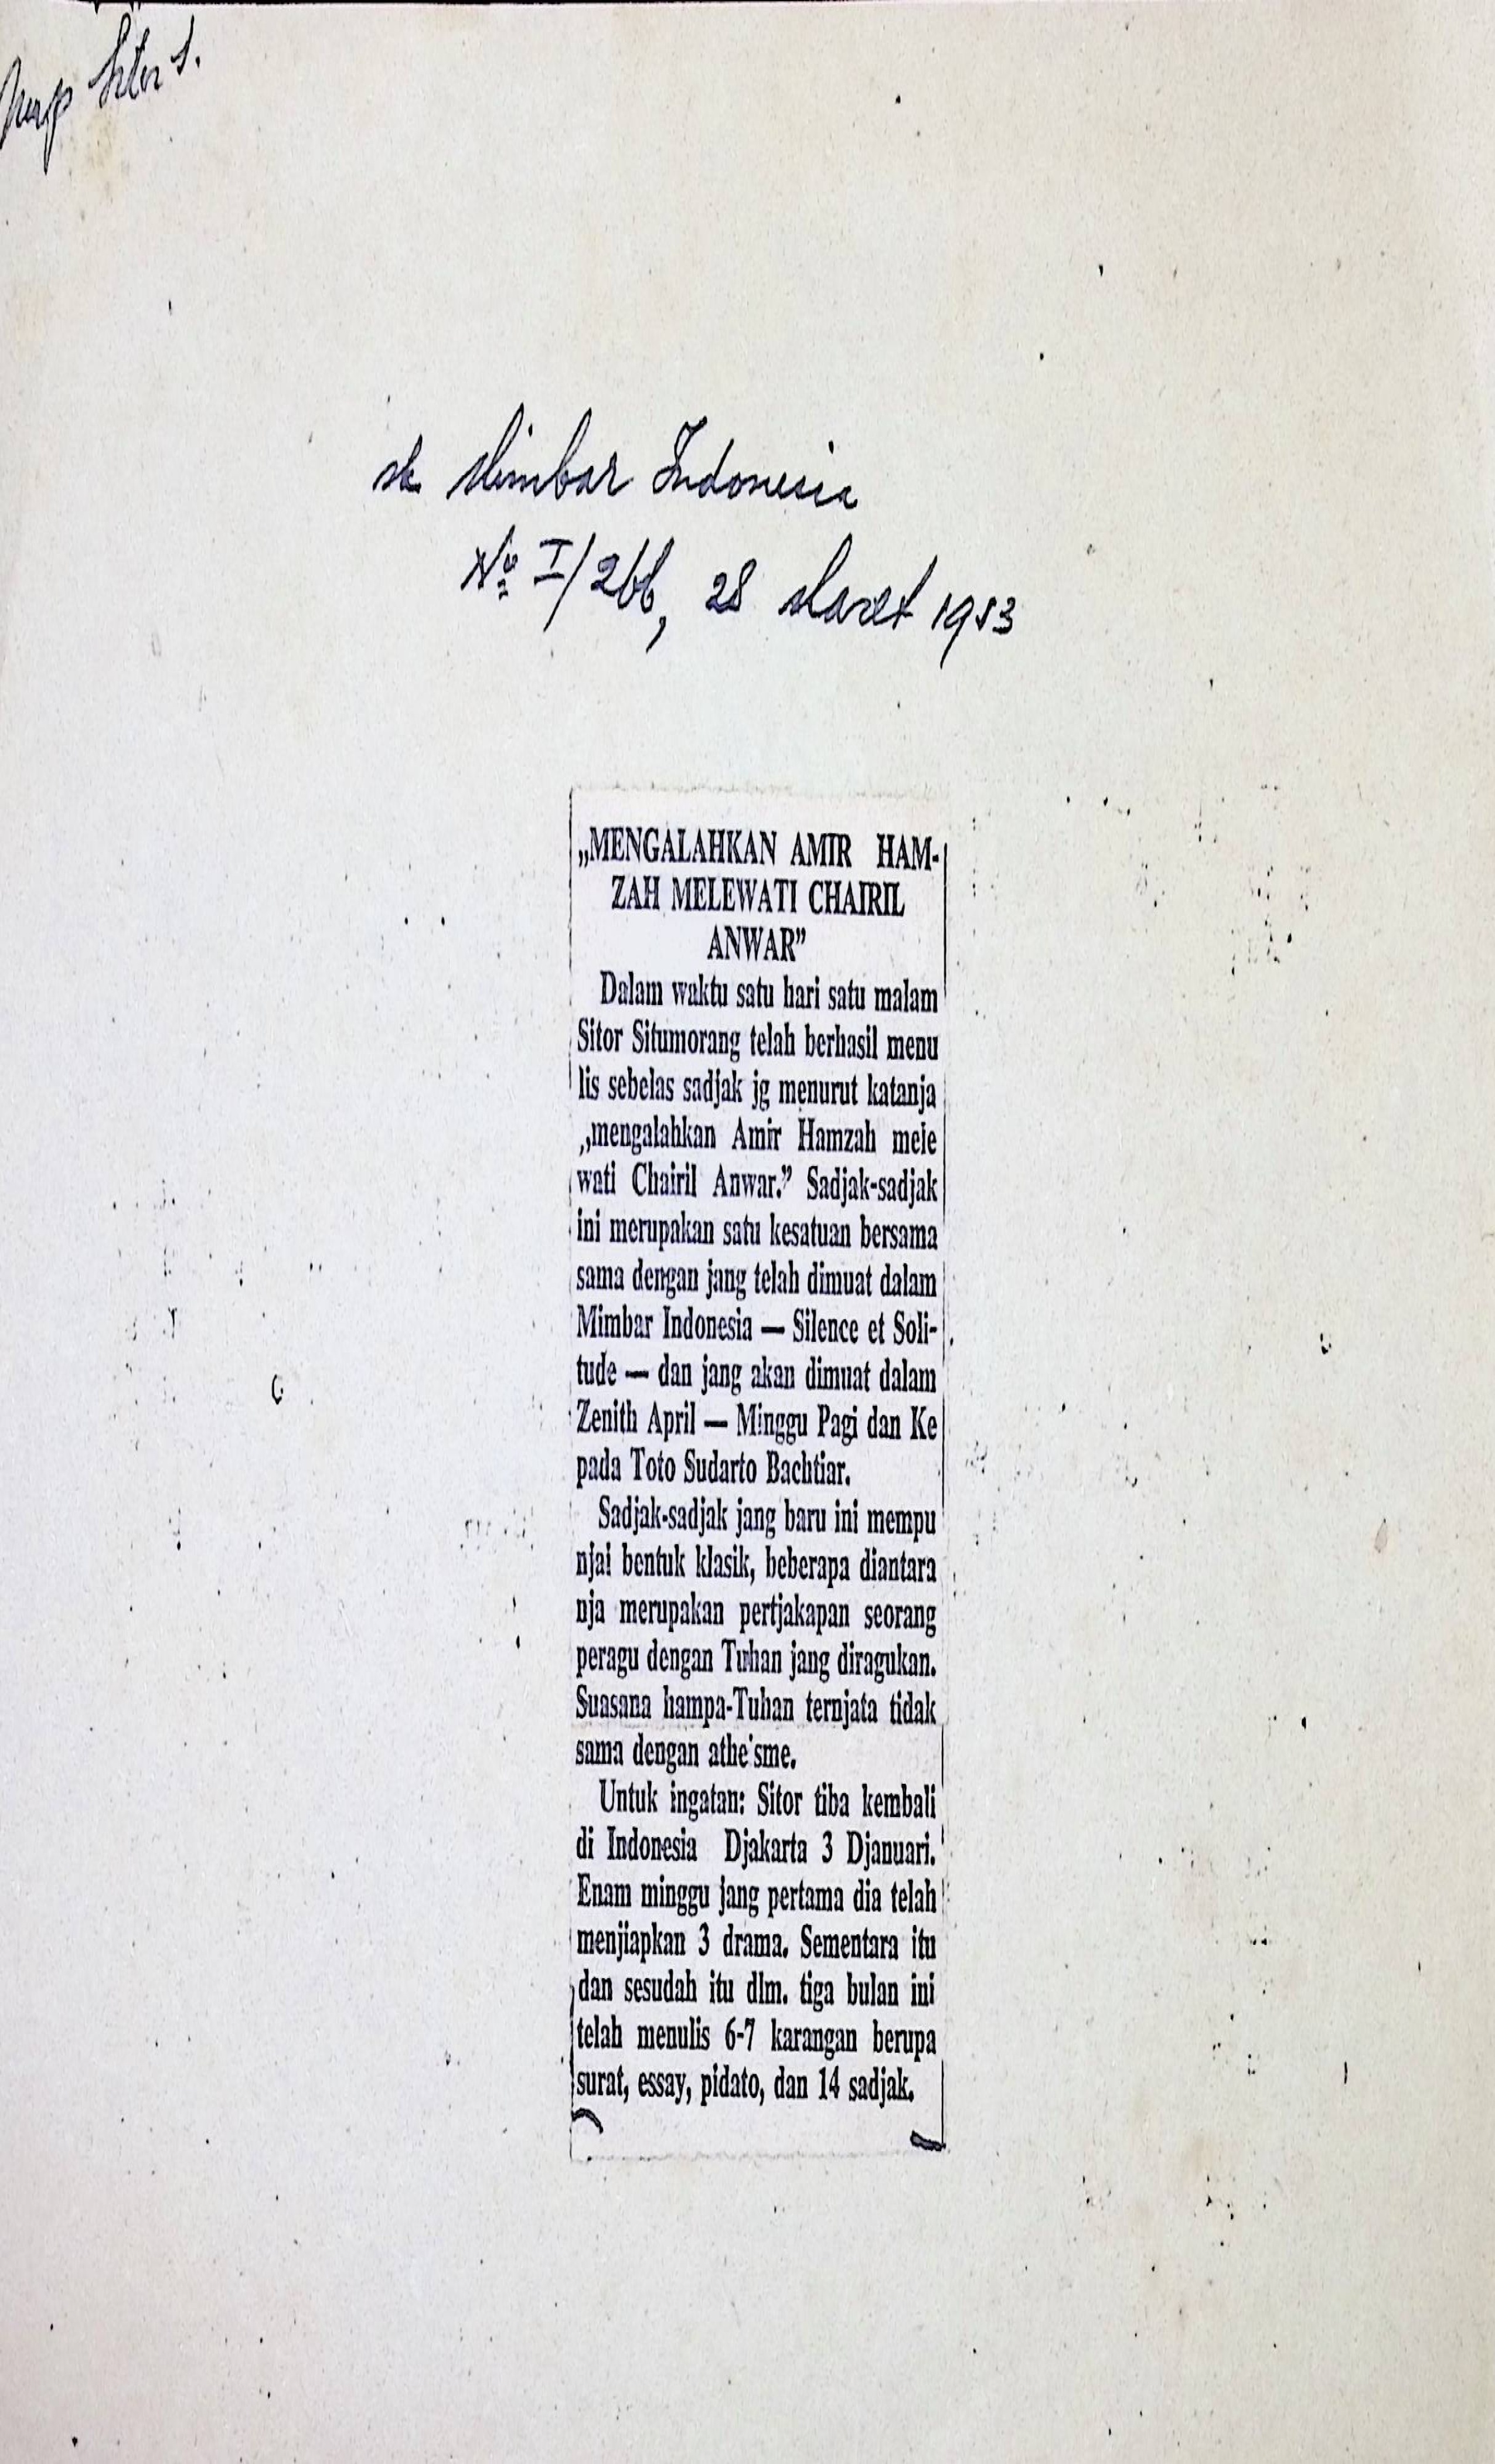 Map Sitor S.
sk Mimbar Indonesia
No I/266, 28 Maret 1953
„MENGALAHKAN AMIR HAM-
ZAH MELEWATI CHAIRIL
ANWAR”
Dalam waktu satu hari satu malam
Sitor Situmorang telah berhasil menu
lis sebelas sadjak jg menurut katanja
„mengalahkan Amir Hamzah mele
wati Chairil Anwar.” Sadjak-sadjak
ini merupakan satu kesatuan bersama
sama dengan jang telah dimuat dalam
Mimbar Indonesia — Silence et Soli-
tude — dan jang akan dimuat dalam
Zenith April — Minggu Pagi dan Ke
pada Toto Sudarto Bachtiar.
Sadjak-sadjak jang baru ini mempu
njai bentuk klasik, beberapa diantara
nja merupakan pertjakapan seorang
peragu dengan Tuhan jang diragukan.
Suasana hampa-Tuhan ternjata tidak
sama dengan athe'sme.
Untuk ingatan: Sitor tiba kembali
di Indonesia Djakarta 3 Djanuari.
Enam minggu jang pertama dia telah
menjiapkan 3 drama. Sementara itu
dan sesudah itu dlm. tiga bulan ini
telah menulis 6-7 karangan berupa
surat, essay, pidato, dan 14 sadjak.